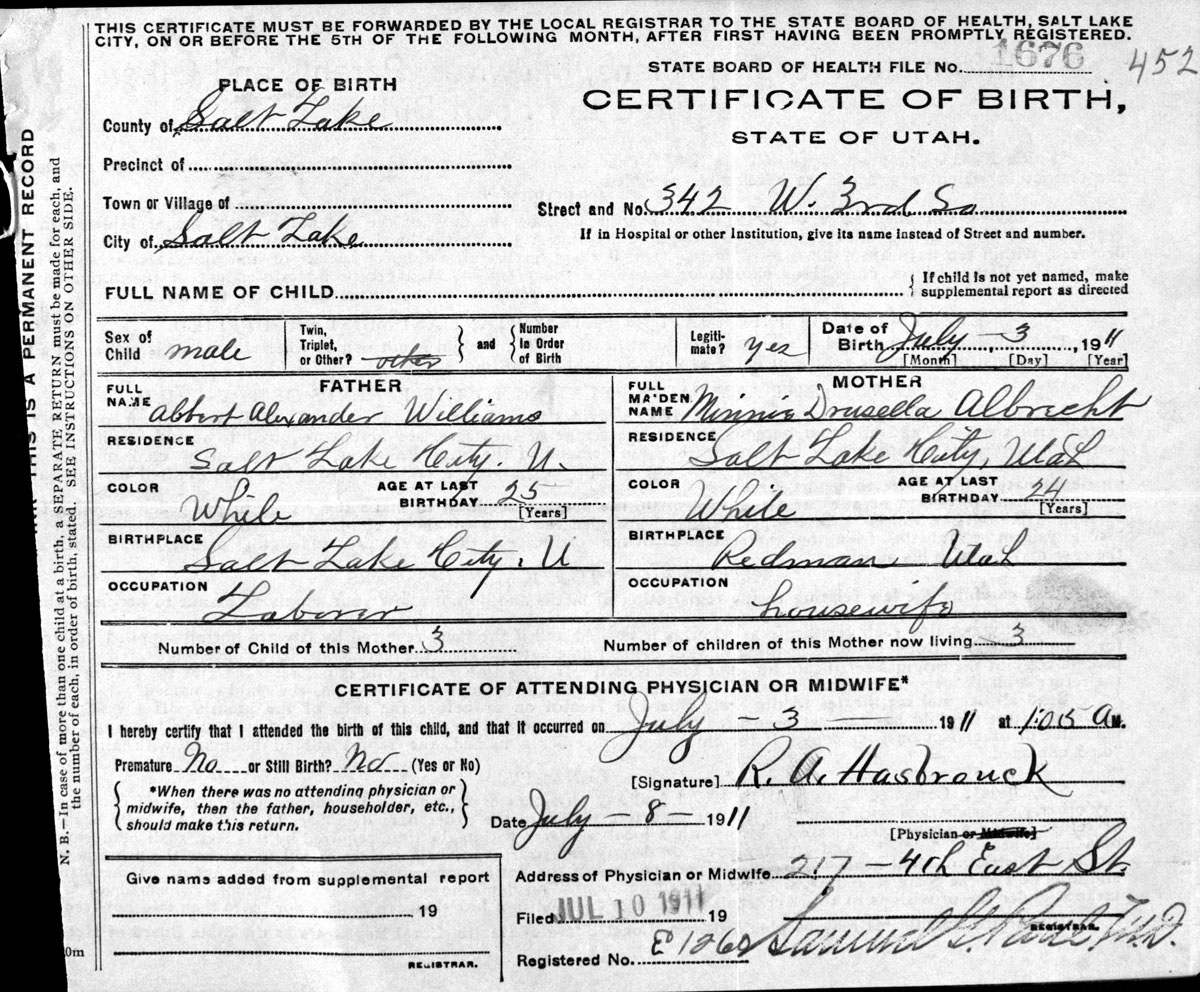 THIS CERTIFICATE MUST BE FORWARDED BY THE LOCAL REGISTRAR TO THE STATE BOARD OF HEALTH, SALT LAKE
CITY, ON OR BEFORE THE 5TH OF THE FOLLOWING MONTH, AFTER FIRST HAVING BEEN PROMPTLY REGISTERED.
STATE BOARD OF HEALTH FILE No. 1676
452
PLACE OF BIRTH
CERTIFICATE OF BIRTH,
STATE OF UTAH.
County of Salt Lake
Precinct of
Town or Village of
City of Salt Lake
Street and No. 342 W. 3rd So
If in Hospital or other Institution, give its name instead of Street and number.
FULL NAME OF CHILD
If child is not yet named, make
supplemental report as directed
Sex of
Child male
Twin,
Triplet,
or Other? other
and
Number
in Order
of Birth
Legiti-
mate? yes
Date of
Birth July - 3, 1911
[Month] [Day] [Year]
FATHER
FULL
NAME Albert Alexander Williams
RESIDENCE
Salt Lake City. U.
COLOR
White
AGE AT LAST
BIRTHDAY 25
[Years]
BIRTHPLACE
Salt Lake City. U
OCCUPATION
Laborer
MOTHER
FULL
MAIDEN
NAME Minnie Drusella Albrecht
RESIDENCE
Salt Lake City, Utah
COLOR
White
AGE AT LAST
BIRTHDAY 24
[Years]
BIRTHPLACE
Redman Utah
OCCUPATION
housewife
Number of Child of this Mother 3
Number of children of this Mother now living 3
CERTIFICATE OF ATTENDING PHYSICIAN OR MIDWIFE*
I hereby certify that I attended the birth of this child, and that it occurred on July - 3 - 1911 at 1:015 A M.
Premature No or Still Birth? No (Yes or No)
*When there was no attending physician or
midwife, then the father, householder, etc.,
should make this return.
[Signature] R. A. Hasbrouck
Date July - 8 - 1911
[Physician or Midwife]
Address of Physician or Midwife 217 - 4th East St.
Filed JUL 10 1911 19
Samuel G. Paul, M.D.
REGISTRAR.
Registered No. E 1260
Give name added from supplemental report
19
REGISTRAR.
0m
THIS IS A PERMANENT RECORD
N. B.—In case of more than one child at a birth, a SEPARATE RETURN must be made for each, and
the number of each, in order of birth, stated. SEE INSTRUCTIONS ON OTHER SIDE.